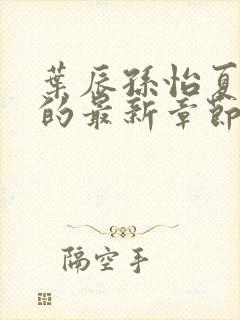 葉辰孫怡夏
的最新章節
隔空手